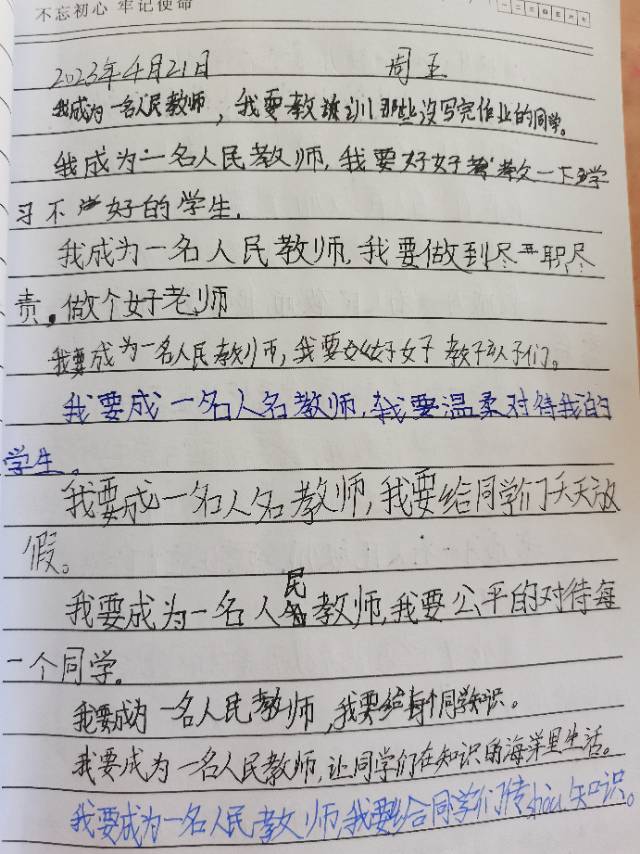 不忘初心 牢记使命
一二三四五六日
2023年4月21日 周五
我成为一名人民教师，我要教训那些没写完作业的同学。
我成为一名人民教师，我要好好教一下学
习不好的学生.
我成为一名人民教师,我要做到尽职尽
责。做个好老师
我要成为一名人民教师，我要好好教孩子们。
我要成一名人名教师,我要温柔对待我的
学生。
我要成一名人名教师,我要给同学们天天放
假。
我要成为一名人民教师,我要公平的对待每
一个同学。
我要成为一名人民教师,我要给每个同学知识。
我要成为一名人民教师,让同学们在知识的海洋里生活。
我要成为一名人民教师,我要给同学们传shòu知识。